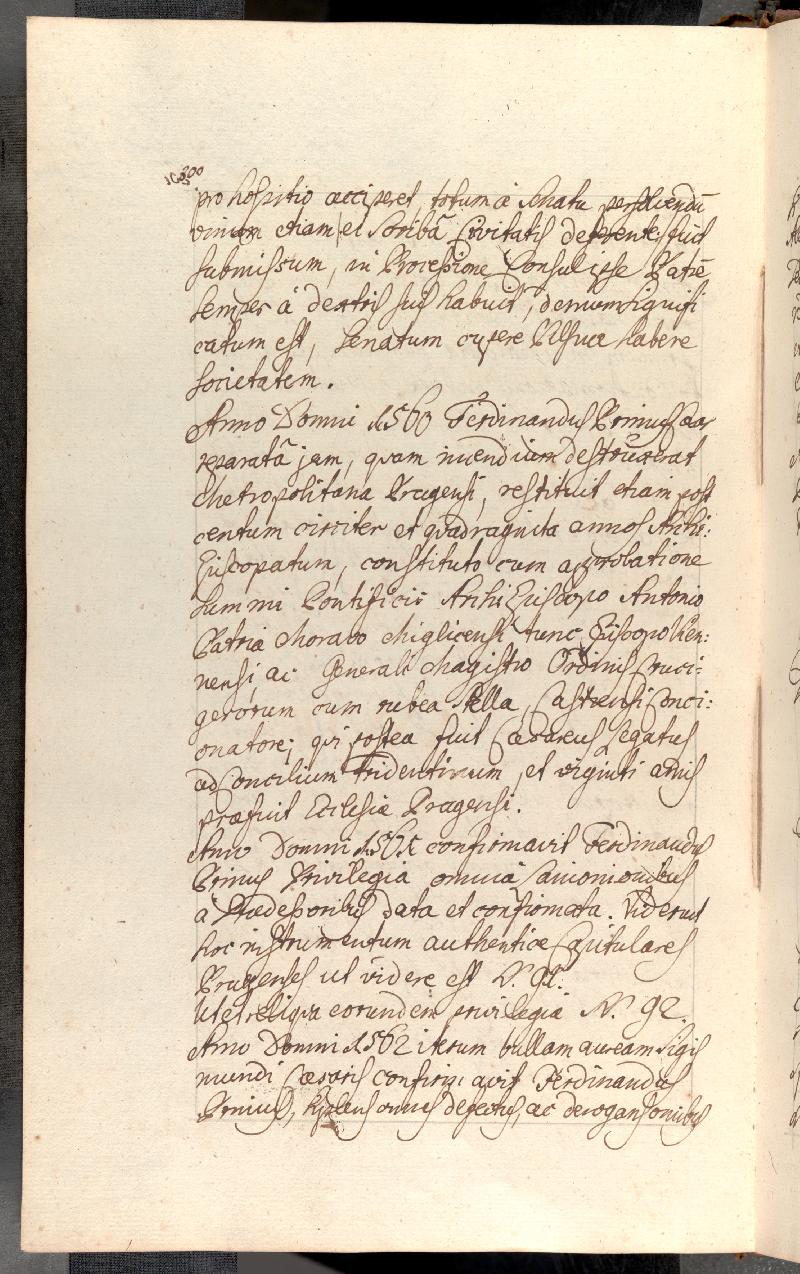 pro hospitio acciperet, totum a Senatu persolvendū
vinum etiam et Scribā Civitatis deferente fuit
submissum, in Processione Consul ipse
semper a dextris suis habuit, demum signifi
catum est, Senatum cupere habere
societatem.
Anno Domni 1560 Ferdinandus Primus
reparatā jam, quam incendium destruxerat
Metropolitana Pragensi, restituit etiam post
centum circiter et quadraginta annos Archi:
Episcopatum, constituto cum approbatione
summi Pontificis Archi Episcopo Antonio
Patria Moravo Miglicensi tunc Episcopo Vien:
nensi, ac Generali Magistro Ordinis Cruci:
gerorum cum rubea Stella, Castrensi Conci:
onatore; qui postea fuit Cæsareus Legatus
ad Concilium Tridentinum, et viginti annis
præfuit Eclesiæ Pragensi.
Anno Domni 1561 confirmavit Ferdinandus
Primus Privilegia omnia Canonicis
a Prædesoribus data et confirmata. Viderunt
hoc instrumentum authenticæ Capitulares
Pragenses ut videre est N. 91.
Ut et reliqua eorundem privilegia N. 92.
Anno Domni 1562 iterum bullam auream Sigis
mundi Cæsaris confirmavit Ferdinandus
Primus, supplens omnes defectus, ac derogans omibus